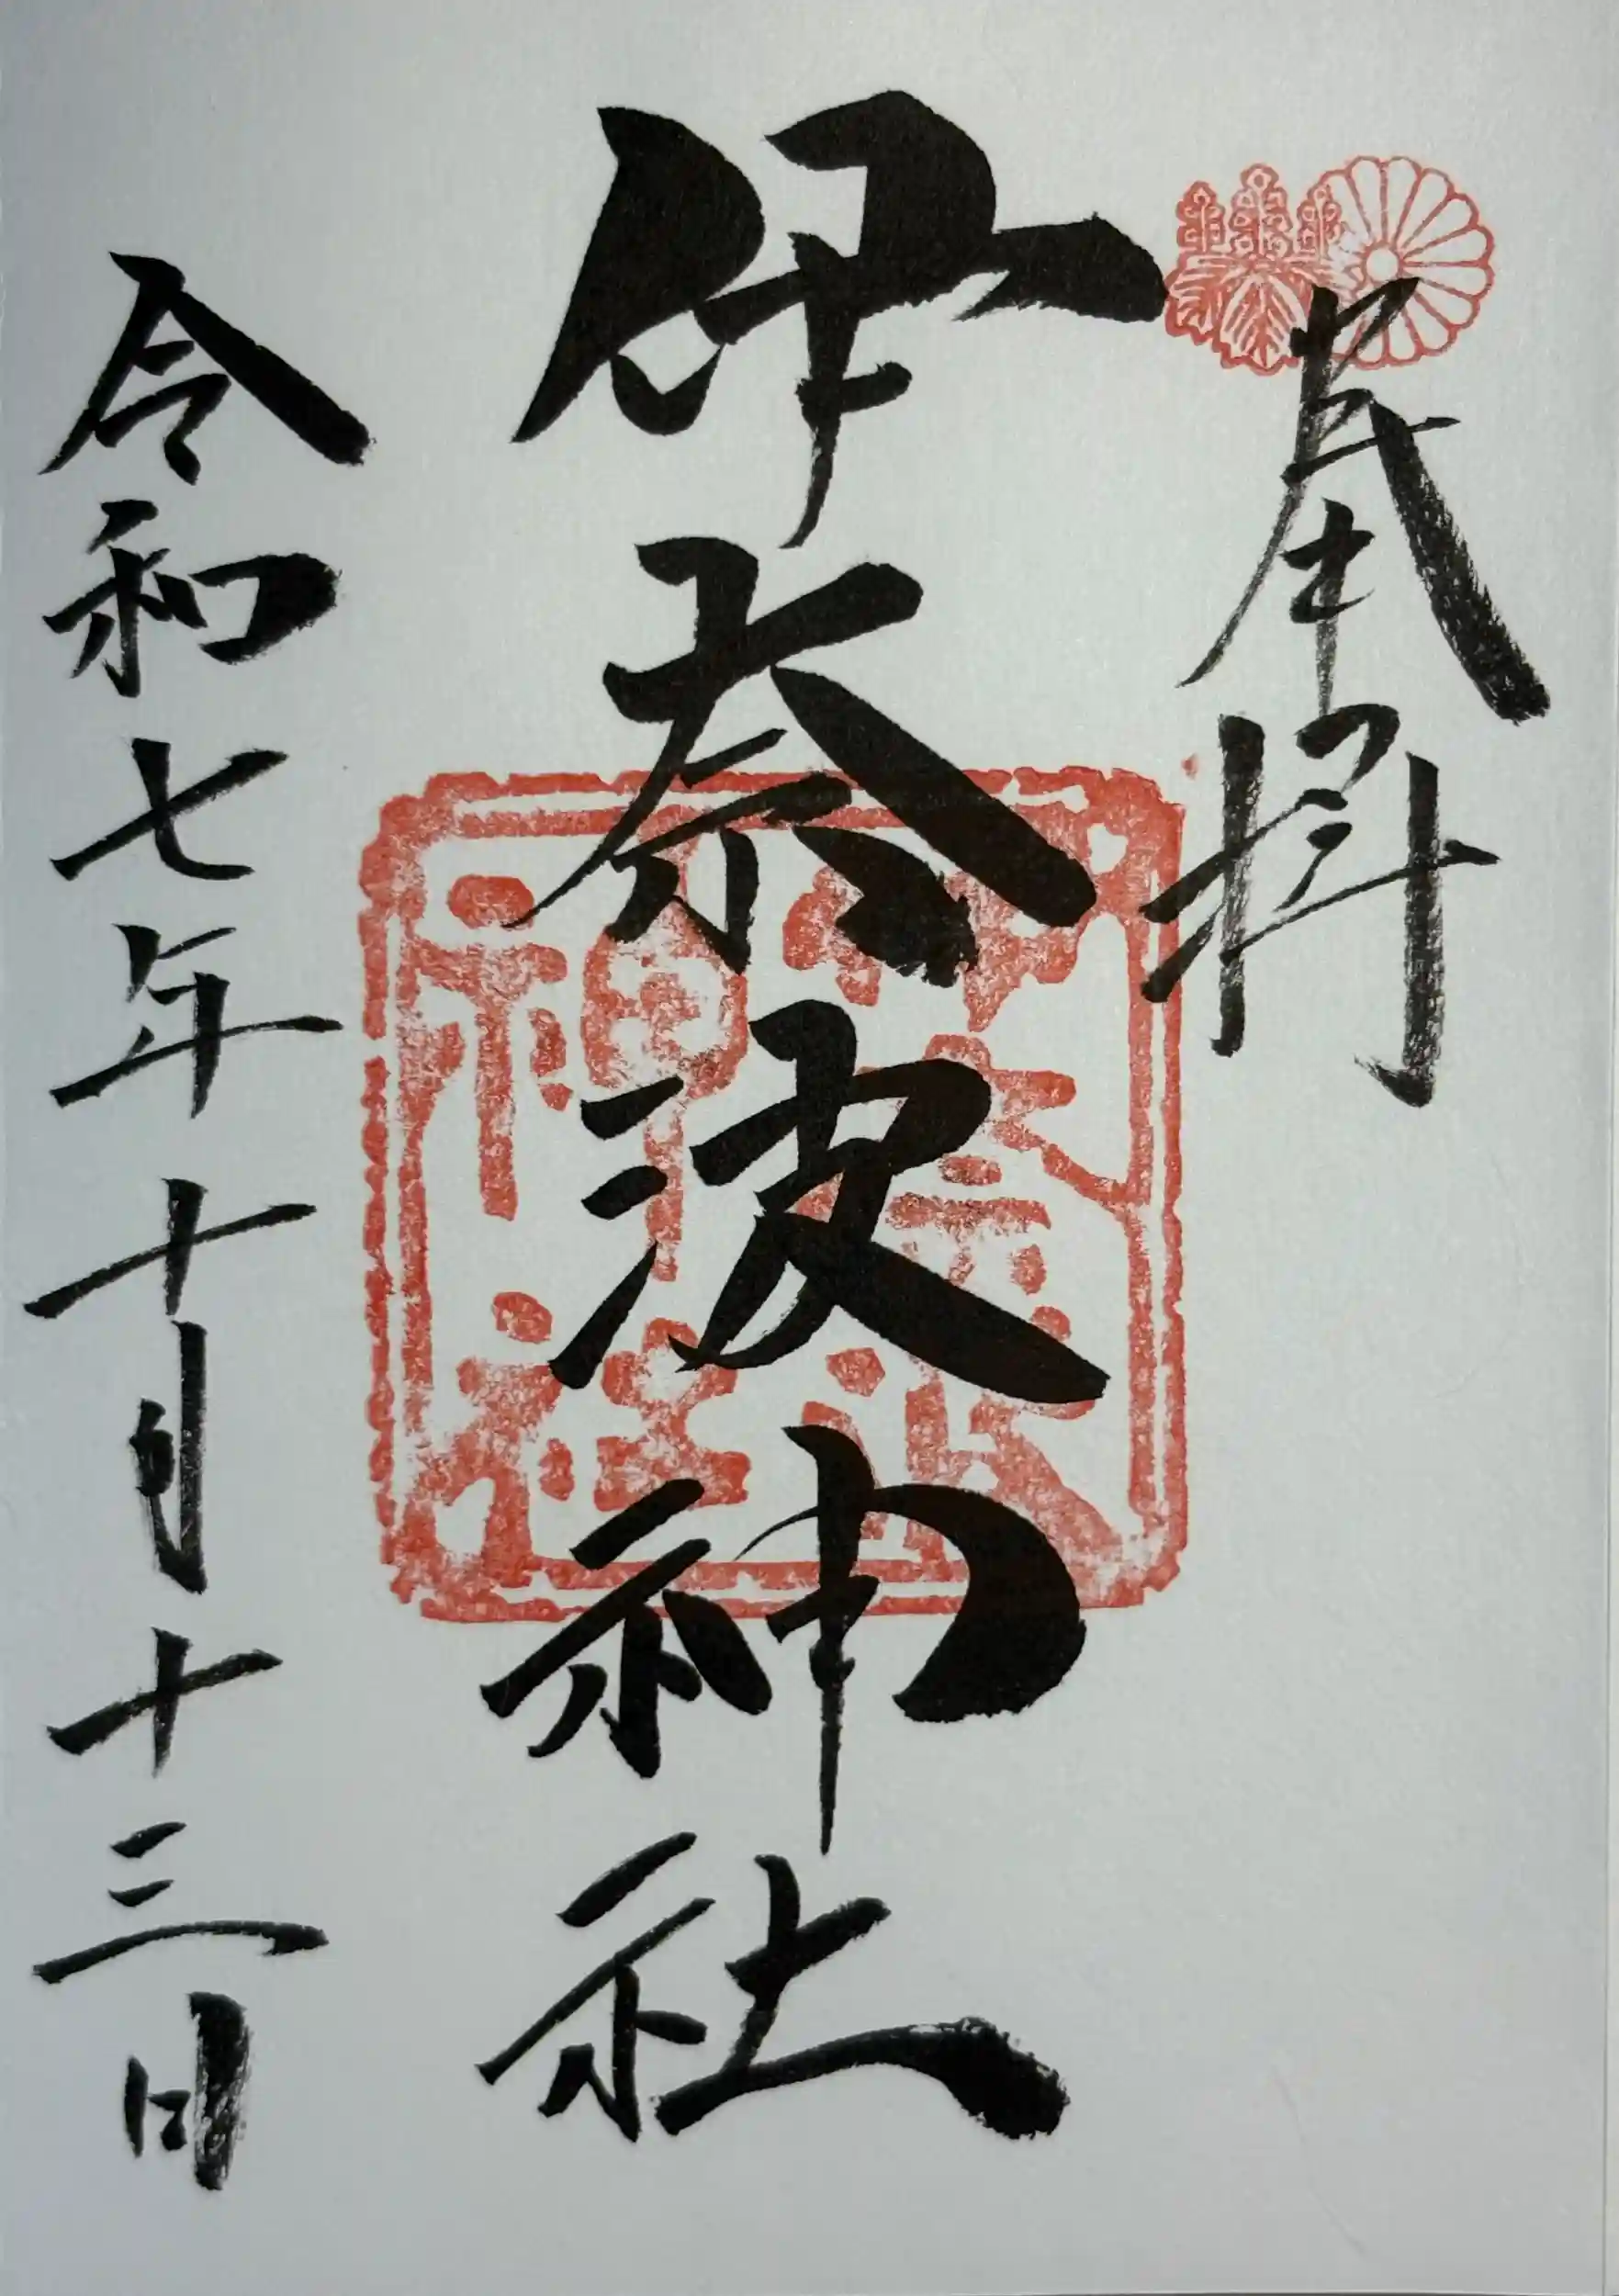 奉拝
伊奈波神社
伊奈波神社
令和七年十月十三日